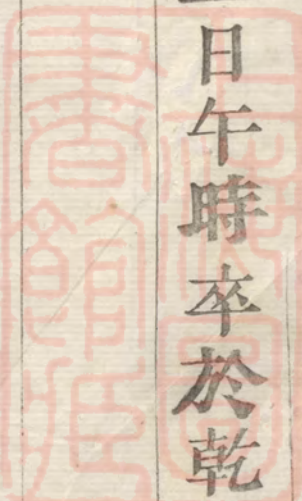 日午時卒於乾